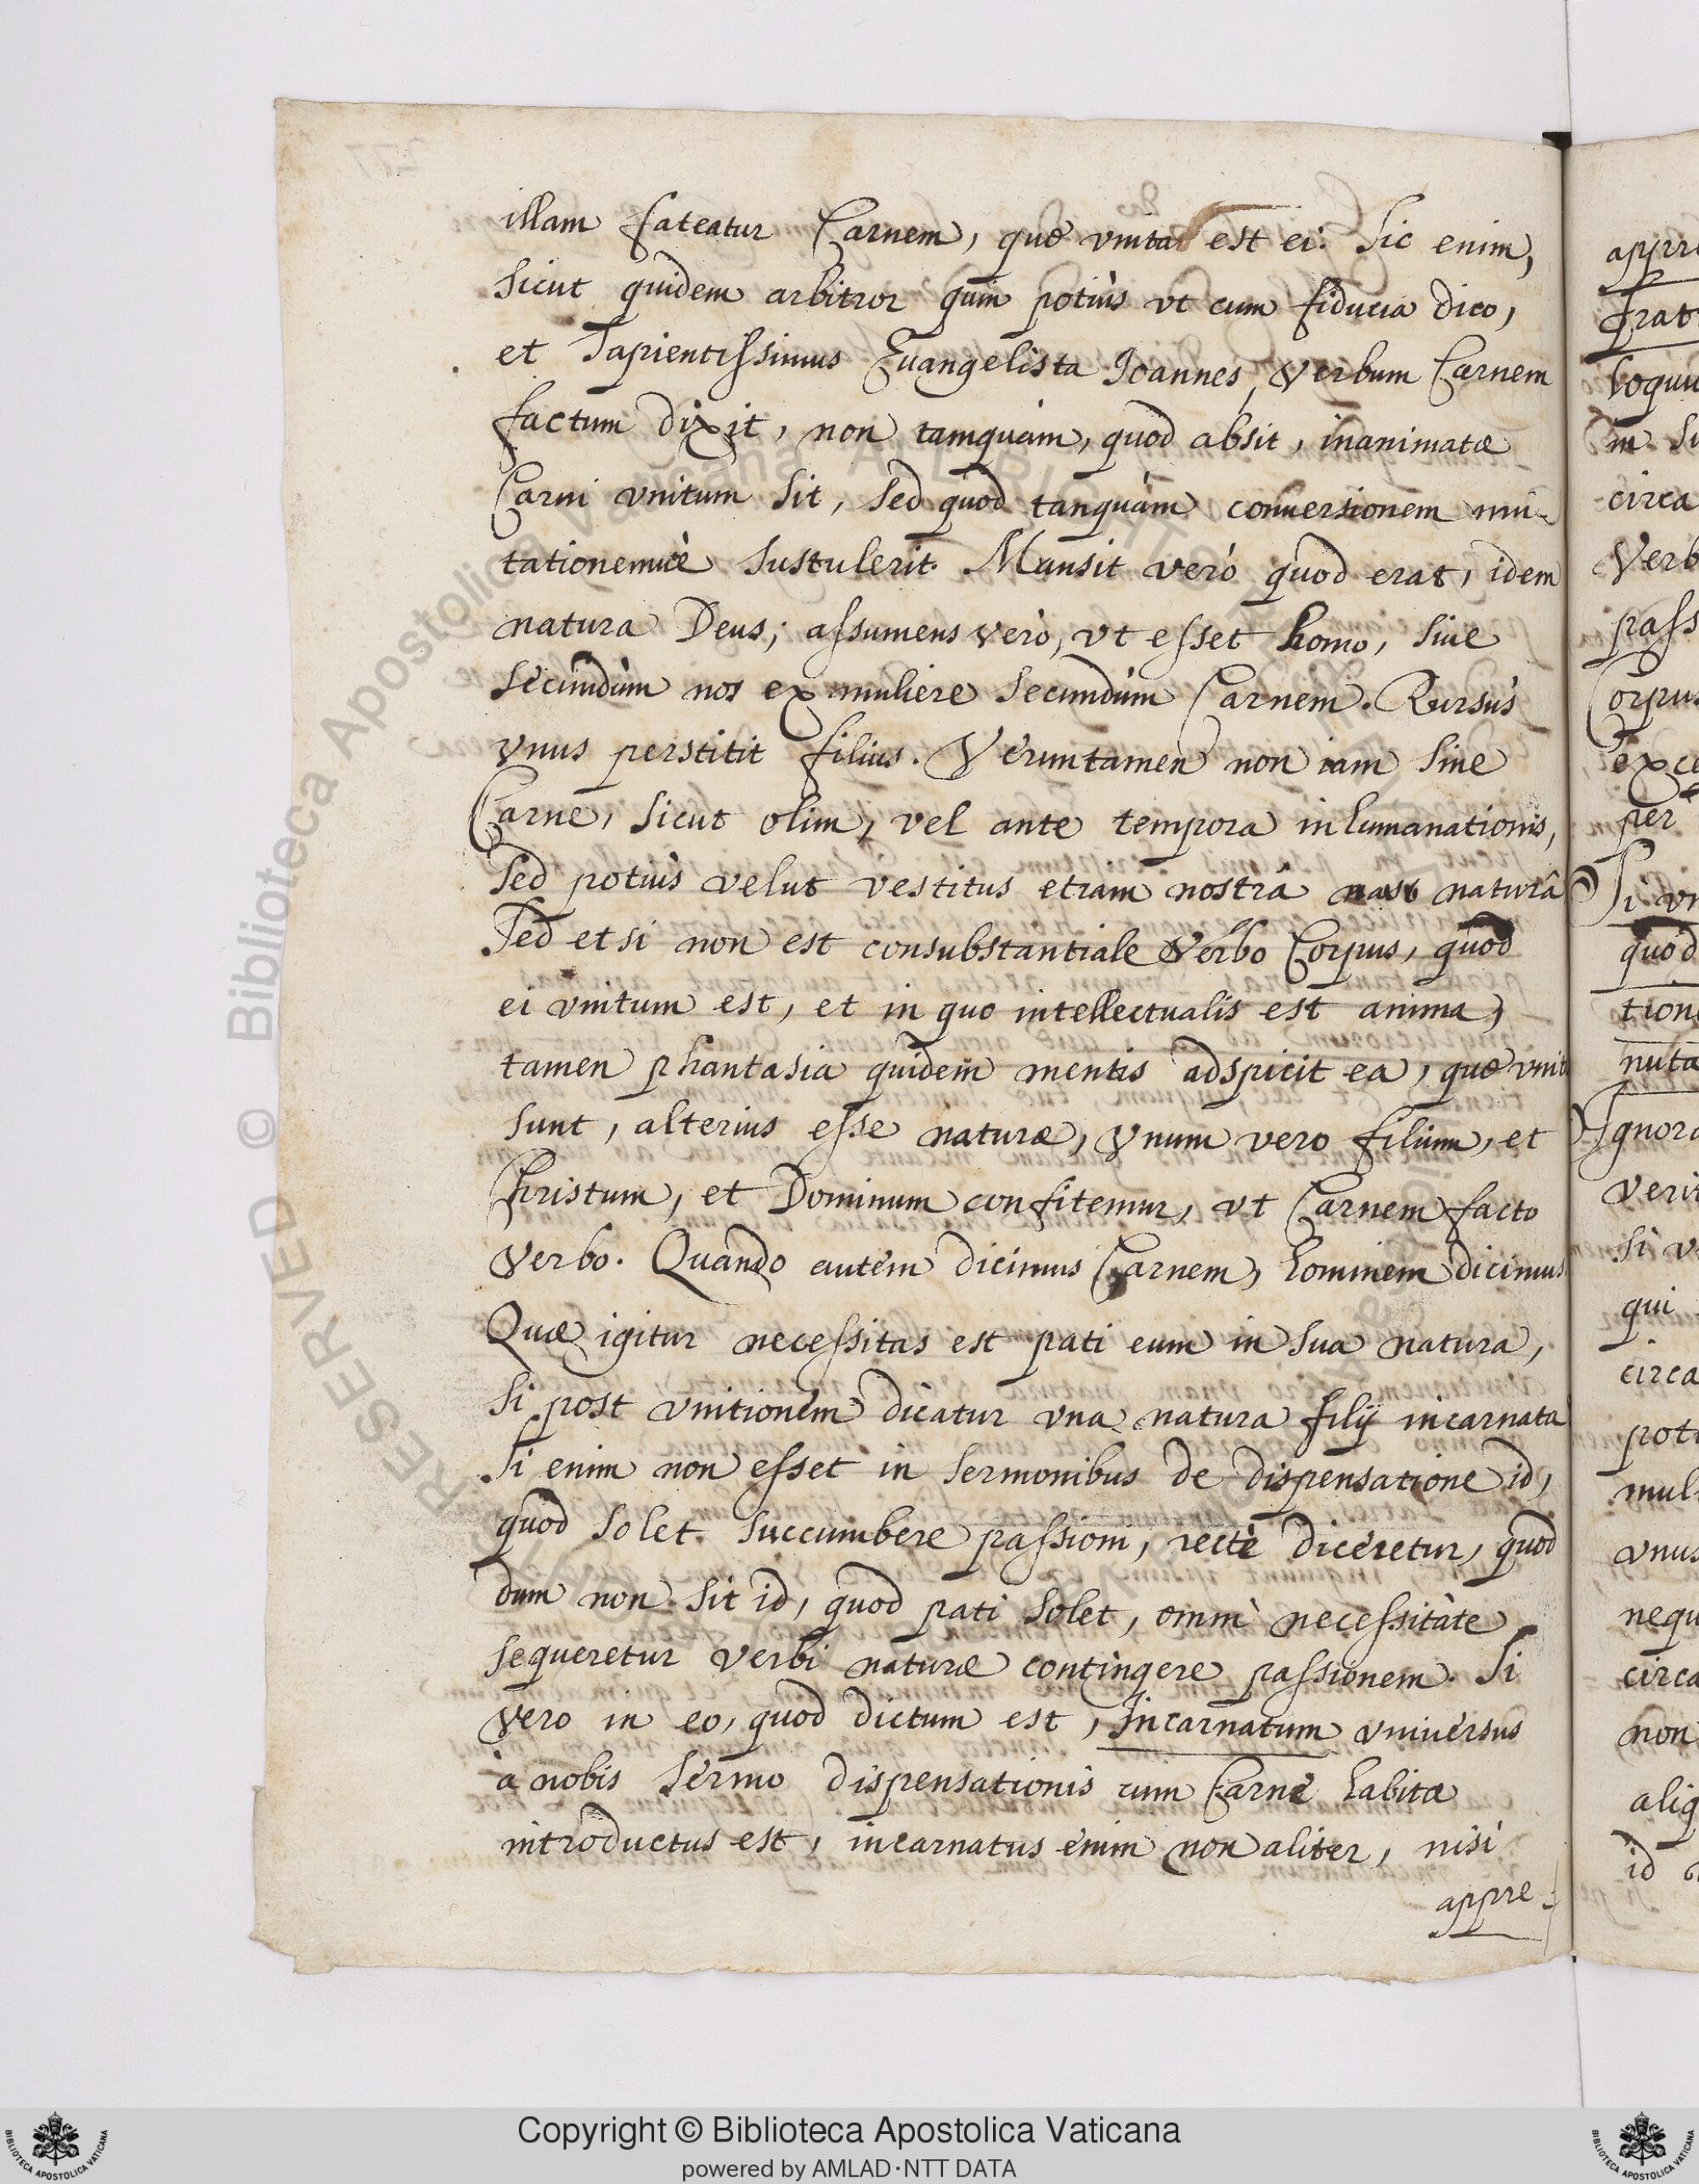 illam fateatur Carnem, quæ vnita est ei. Sic enim,
sicut quidem arbitror quin potiùs vt cum fiducia dico,
et Sapientissimus Euangelista Ioannes, Verbum Carnem
factum dixit, non tamquàm, quod absit, inanimatæ
Carni vnitum sit, sed quod tanquàm conuersionem mu-
tationemuè sustulerit. Mansit verò quod erat, idem
natura Deus; assumens verò, vt esset homo, siue
secundùm nos ex muliere secundùm Carnem. Rursùs
vnus perstitit filius. Veruntamen non iam sine
Carne, sicut olim, vel ante tempora inhumanationis,
sed potiùs velut vestitus etiam nostrâ naturâ
Sed etsi non est consubstantiale Verbo Corpus, quod
ei vnitum est, et in quo intellectualis est anima,
tamen phantasia quidem mentis adspicit ea, quæ vnit
sunt, alterius esse naturæ, vnum vero filium, et
Christum, et Dominum confitemur, vt Carnem facto
Verbo. Quando autem dicimus Carnem, hominem dicimus
Quæ igitur necessitas est pati eum in sua natura,
si post vnitionem dicatur vna natura filij incarnata
Si enim non esset in sermonibus de dispensatione id,
quod solet succumbere passioni, rectè diceretur, quod
dum non sit id, quod pati solet, omni necessitate
sequeretur verbi naturæ contingere passionem. Si
vero in eo, quod dictum est, Incarnatum vniuersus
à nobis sermo dispensationis cum Carne habitæ
introductus est, incarnatus enim non aliter, nisi
appre-
appre
frat
loquu
in su
circa
Verb
pass
Corpus
exce
per
Si vn
quod
tion
nuta
Ignora
verit
si v
qui
circa
poti
mul
vnus
nequ
circa
non
aliq
id
© Biblioteca Apostolica Vaticana
RESERVED
Copyright © Biblioteca Apostolica Vaticana
powered by AMLAD·NTT DATA
BIBLIOTECA APOSTOLICA VATICANA
BIBLIOTECA APOSTOLICA VATICANA